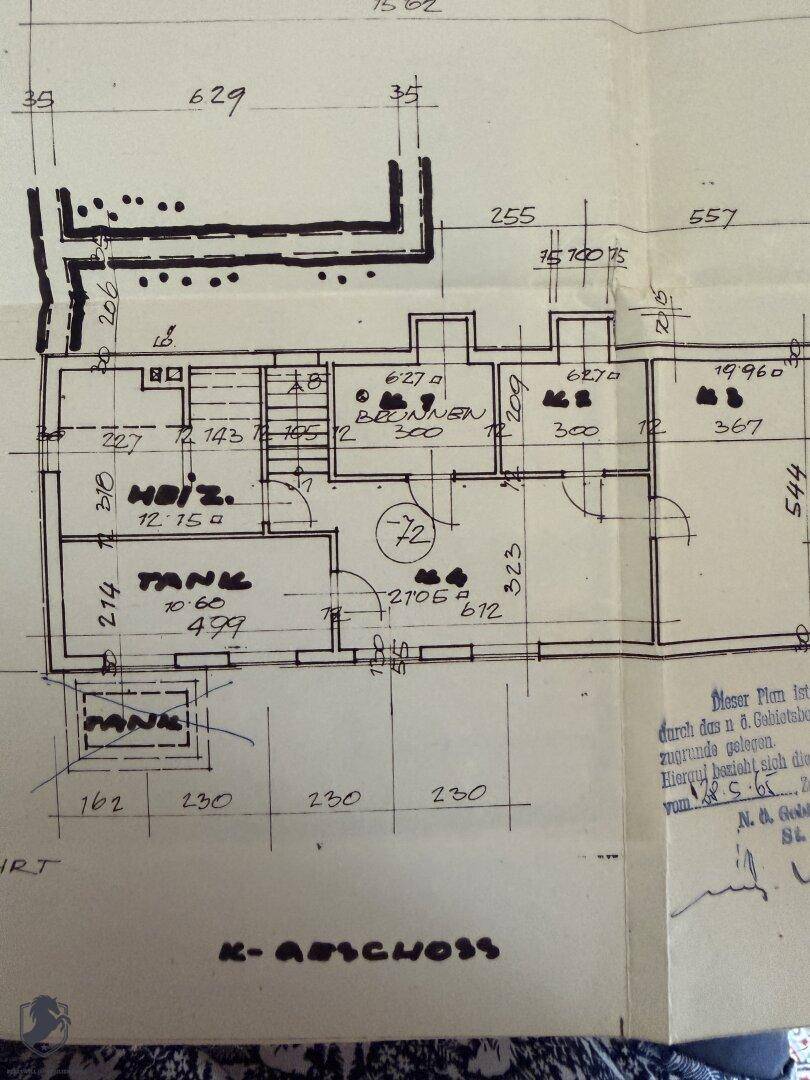 1562
35
629
35
255
557
75
100
75
35
206
30
8
6·27
K1
BRUNNEN
300
209
6·27
K2
300
19·96
K3
367
30
227
12
143
12
105
12
12
12
318
HEIZ.
12·15
1
12
544
-72
12
K4
21·05
612
323
TANK
10·60
499
214
12
30
30
130
55
30
TANK
162
230
230
230
Dieser Plan ist
durch das n ö. Gebietsba
zugrunde gelegen.
Hierauf bezieht sich die
vom 28.5.65
N. ö. Gebi
St.
HRT
K-GESCHOSS